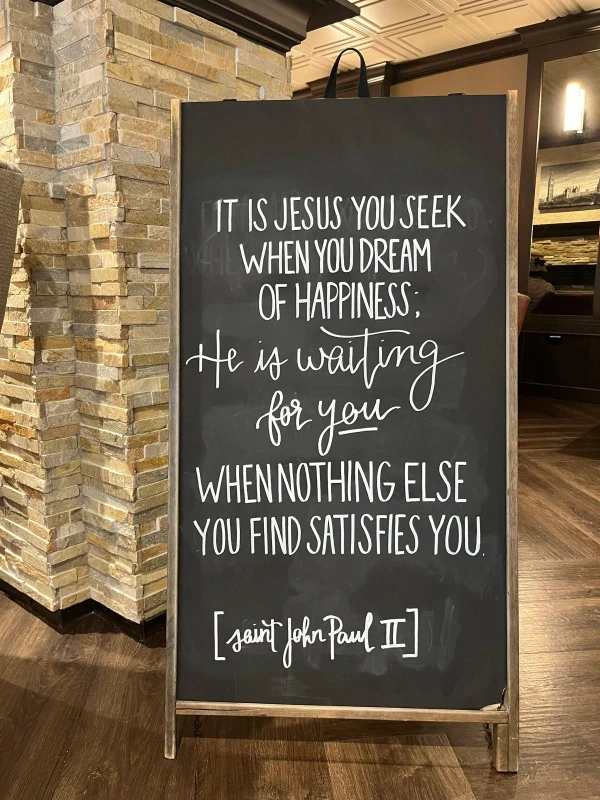 IT IS JESUS YOU SEEK
WHEN YOU DREAM
OF HAPPINESS;
He is waiting
for you
WHEN NOTHING ELSE
YOU FIND SATISFIES YOU.
[saint John Paul II]